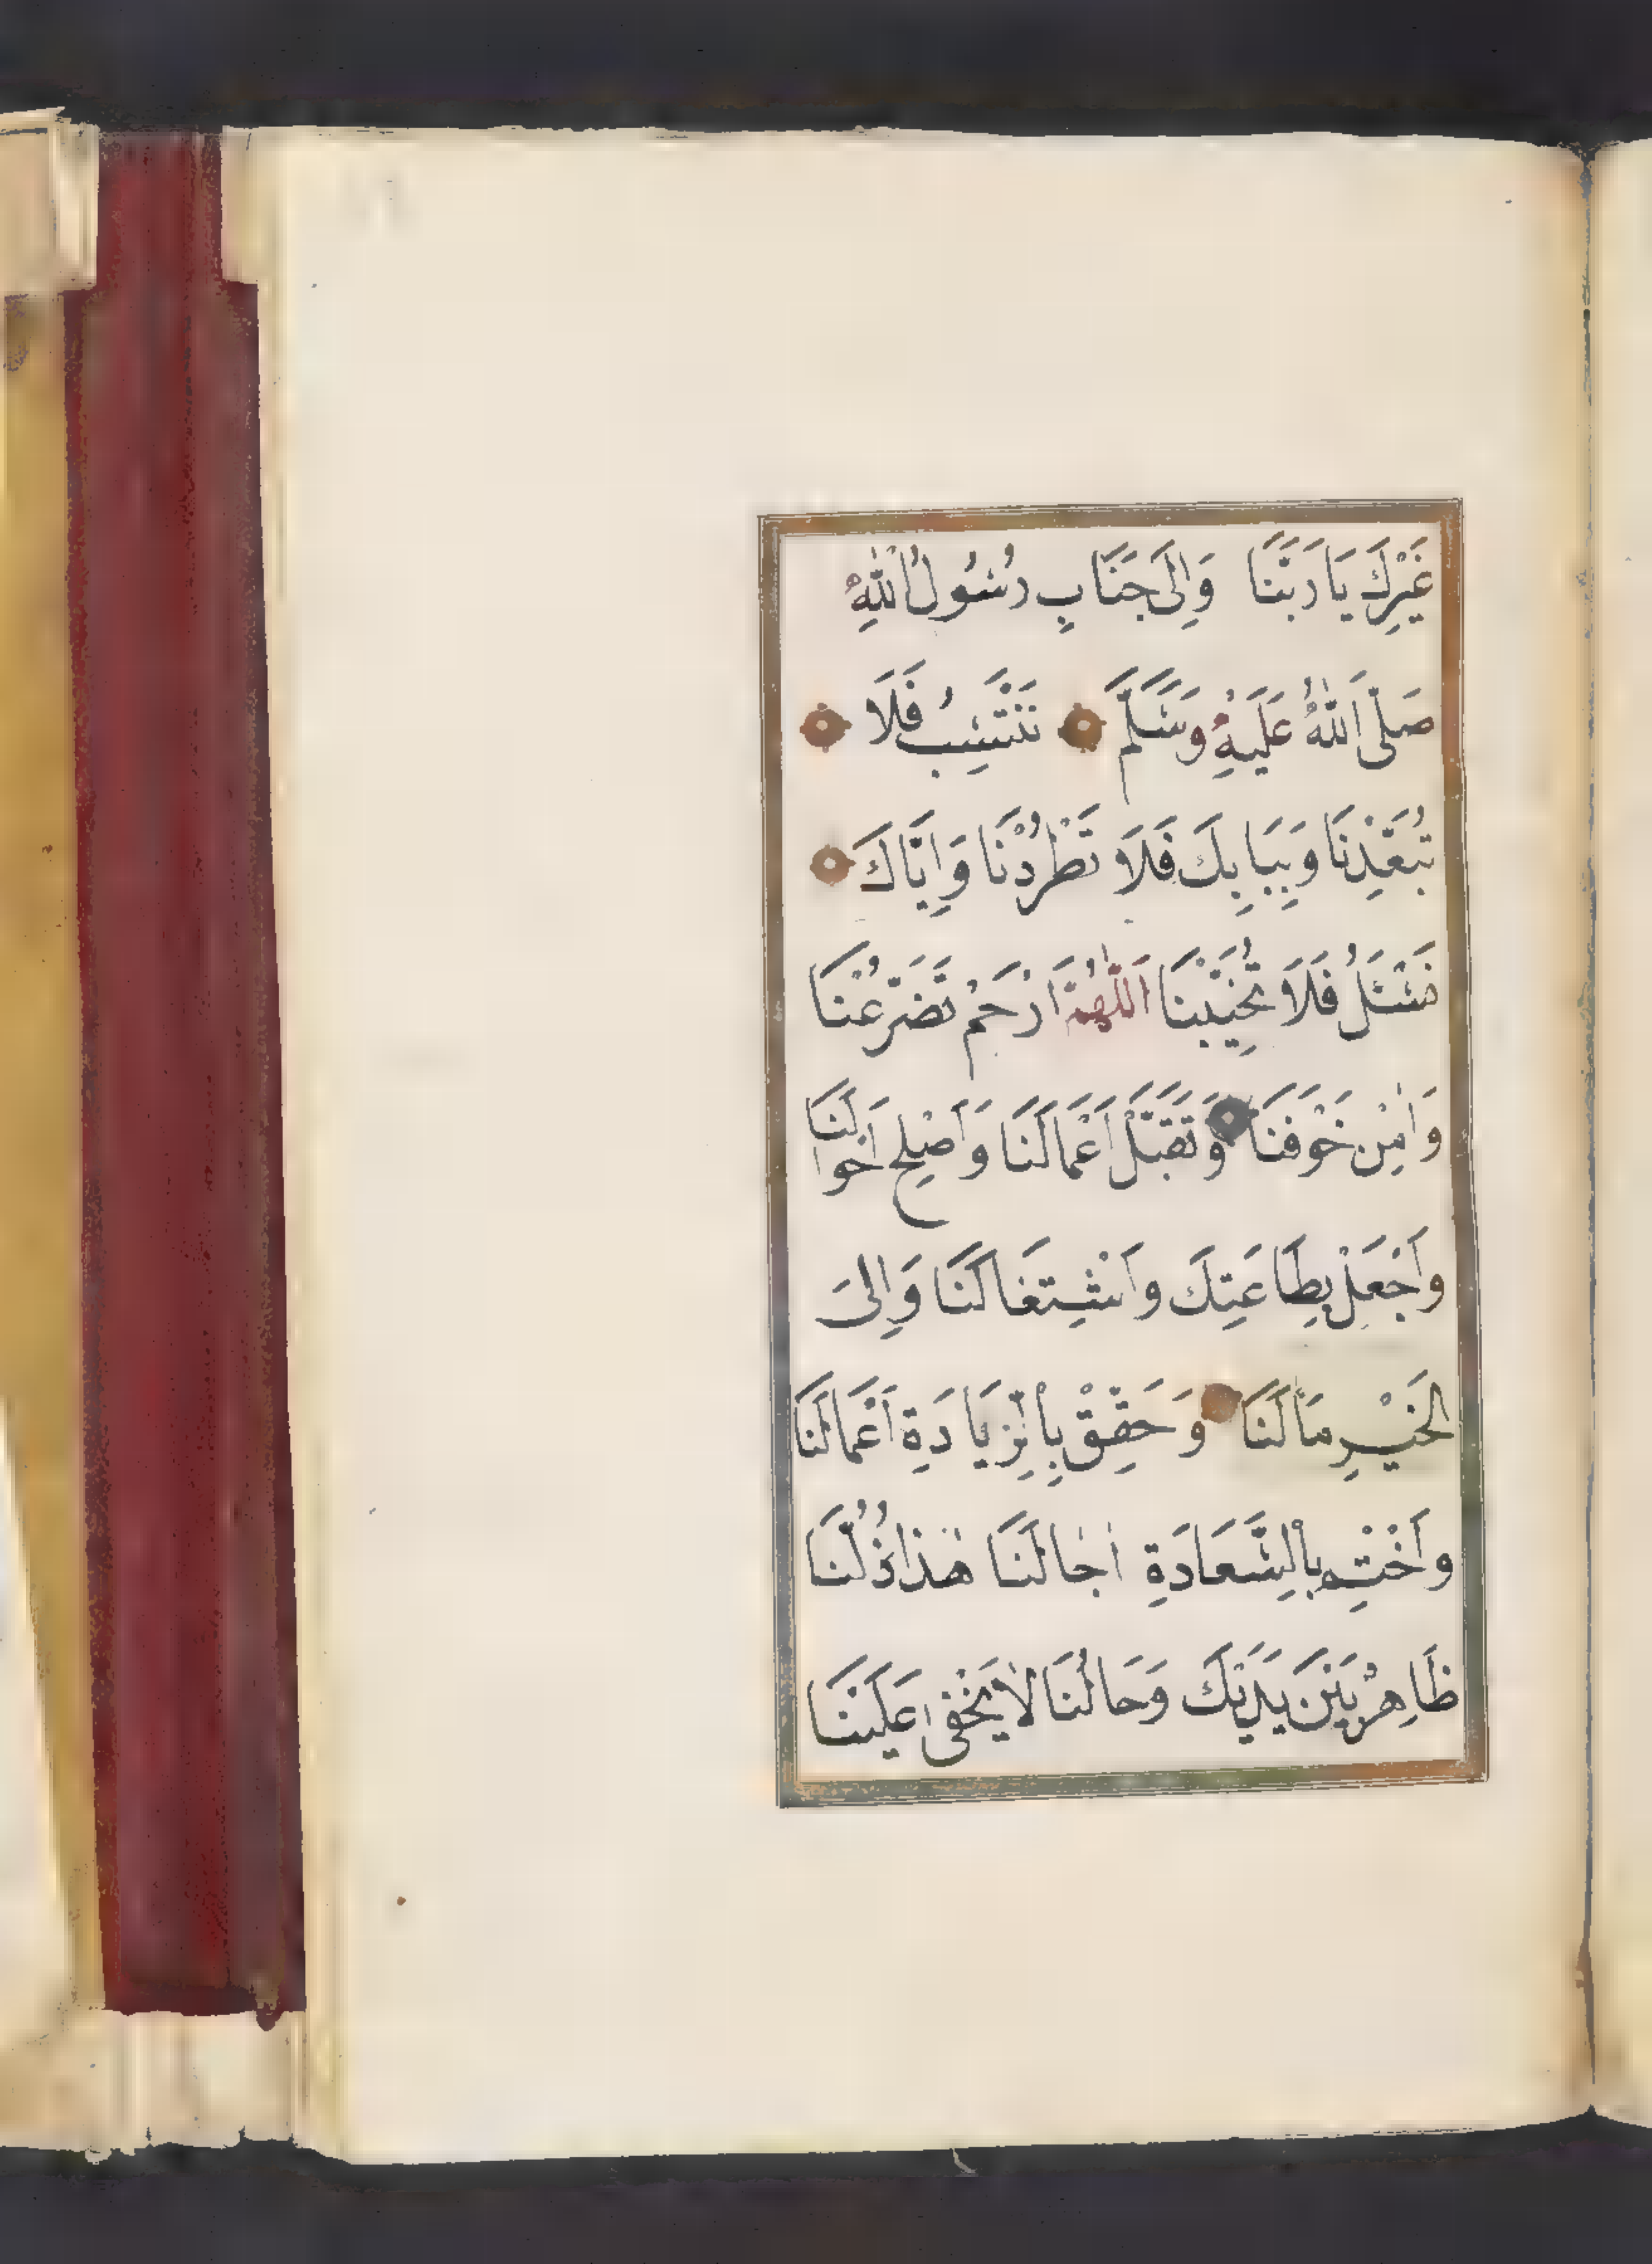 غَيْرِكَ يَا رَبَّنَا وَاِلَى جَنَابِ رَسُولُ اللّٰهِ
صَلَّى اللّٰهُ عَلَيْهِ وَسَلَّمَ نَنْتَسِبُ فَلَا
تُبَعِّدْنَا وَبِبَابِكَ فَلَا تَطْرُدْنَا وَاِيَّاكَ
نَسْئَلُ فَلَا تُخَيِّبْنَا اَللّٰهُمَّ ارْحَمْ تَضَرُّعَنَا
وَاٰمِنْ خَوْفَنَا وَتَقَبَّلْ اَعْمَالَنَا وَاَصْلِحْ اَخْوَالَنَا
وَاجْعَلْ بِطَاعَتِكَ وَاشْتِغَالَنَا وَاِلَى
الْخَيْرِ مَاٰلَنَا وَحَقِّقْ بِالزِّيَادَةِ اَعْمَالَنَا
وَاخْتِمْ بِالسَّعَادَةِ اٰجَالَنَا هٰذَا ذُلُّنَا
ظَاهِرٌ بَيْنَ يَدَيْكَ وَحَالُنَا لَا يَخْفٰى عَلَيْنَا